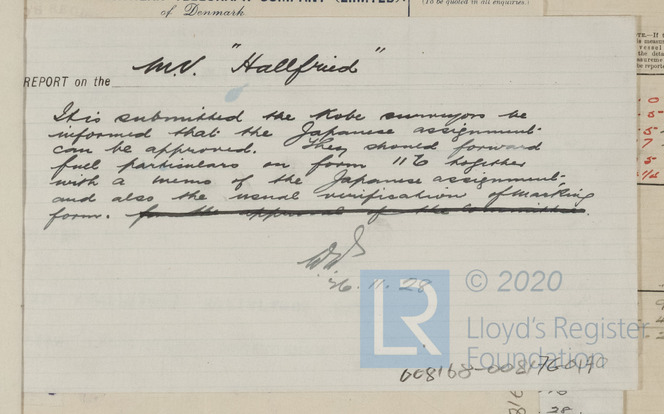 of Denmark
(To be quoted in all enquiries.)
REPORT on the M.V. "Hallfried"
It is submitted the Kobe surveyors be
informed that the Japanese assignment
can be approved. They should forward
full particulars on form 116 together
with a memo of the Japanese assignment,
and also the usual verification of marking
form. for the approval of the Committee.
26.11.28
LR
© 2020
Lloyd's Register
Foundation